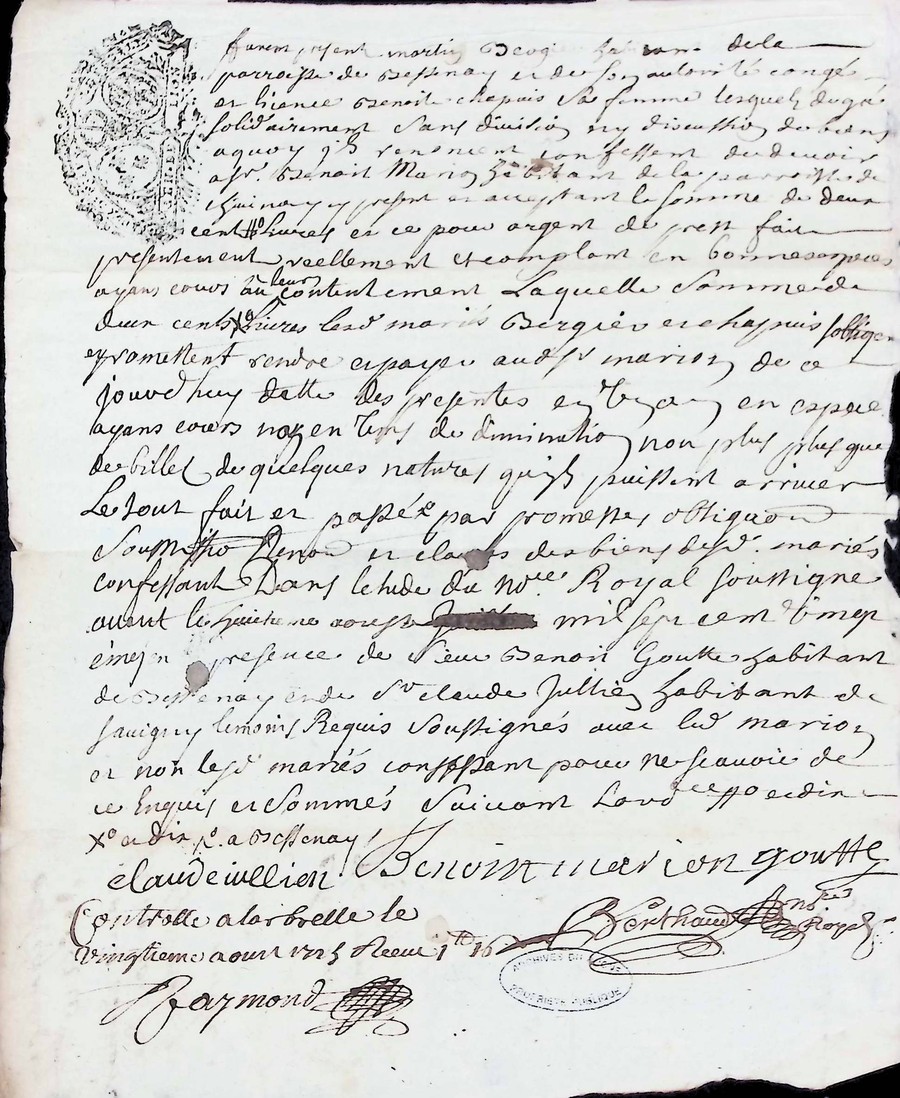 furent present martin Bergier habitant de la
parroisse de Bessenay et de son autorité congé
et licence Benoite chapuis sa femme lesquels de gré
solidairement sans division ny discussion de biens
a quoy ils renoncent confessent de devoir
a sr. Benoit Marion habitant de la parroisse de
y present et acceptant la somme de deux
cent livres et ce pour argent de prest fait
presentement reellement et comptant en bonnes especes
ayans cours a leur contentement Laquelle somme de
deux cents livres lesd mariés Bergier et chapuis sobligent
et promettent rendre et payer aud sr marion de ce
jourd'huy datte des presentes en en espece
ayans cours non en tems de diminution non plus plus que
de billet de quelques natures quils puissent arriver
Le tout fait et passé par promesses obligaon
et clauses des biens desd. mariés
confessant Dans letude du Nore. Royal soussigne
avant le huitieme aoust mil sept cent vingt
cinq en presence de sieur Benoit Goutte habitant
de Bessenay et de Sr claude Jullien habitant de
savigny temoins Requis soussignés avec led marion
et non lesd mariés confessant pour ne scavoir de
ce Enquis et sommés suivant Lordce
a Bessenay
claude iullien Benoist marion goutte
Controlle a larbrelle le Berthaud nore Royal
vingtieme aout 1725 Receu 1tt 16
Raymond
ARCHIVES DU RHÔNE